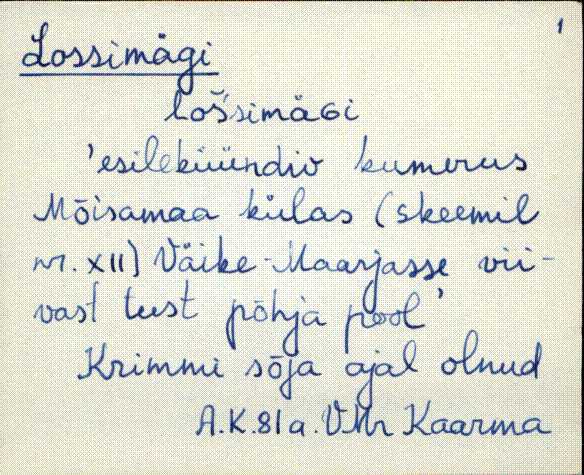 1
Lossimägi
loššimäGi
'esileküündiv kumerus
Mõisamaa külas (skeemil
nr. XII) Väike-Maarjasse vii-
vast teest põhja pool'
Krimmi sõja ajal olnud
A.K. 81 a. VMr Kaarma